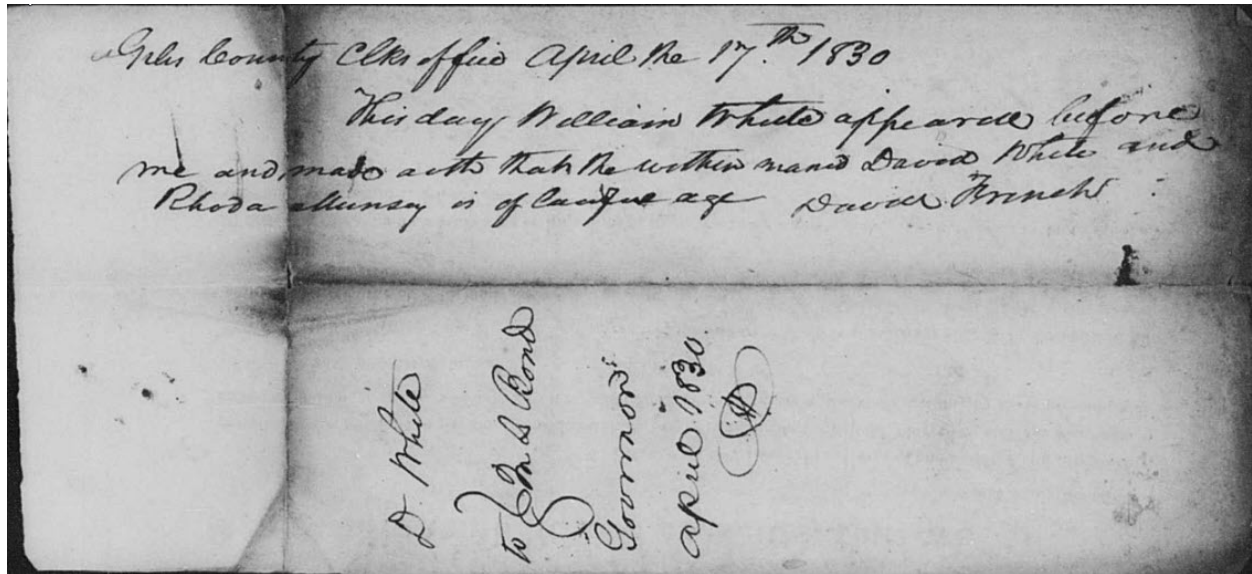 Giles County Clks office April the 17.th 1830
This day William White appeared before
me and made oath that the within named David White and
Rhoda Munsey is of lawful age David French
D. White
to } M Bond
Governor
April 1830